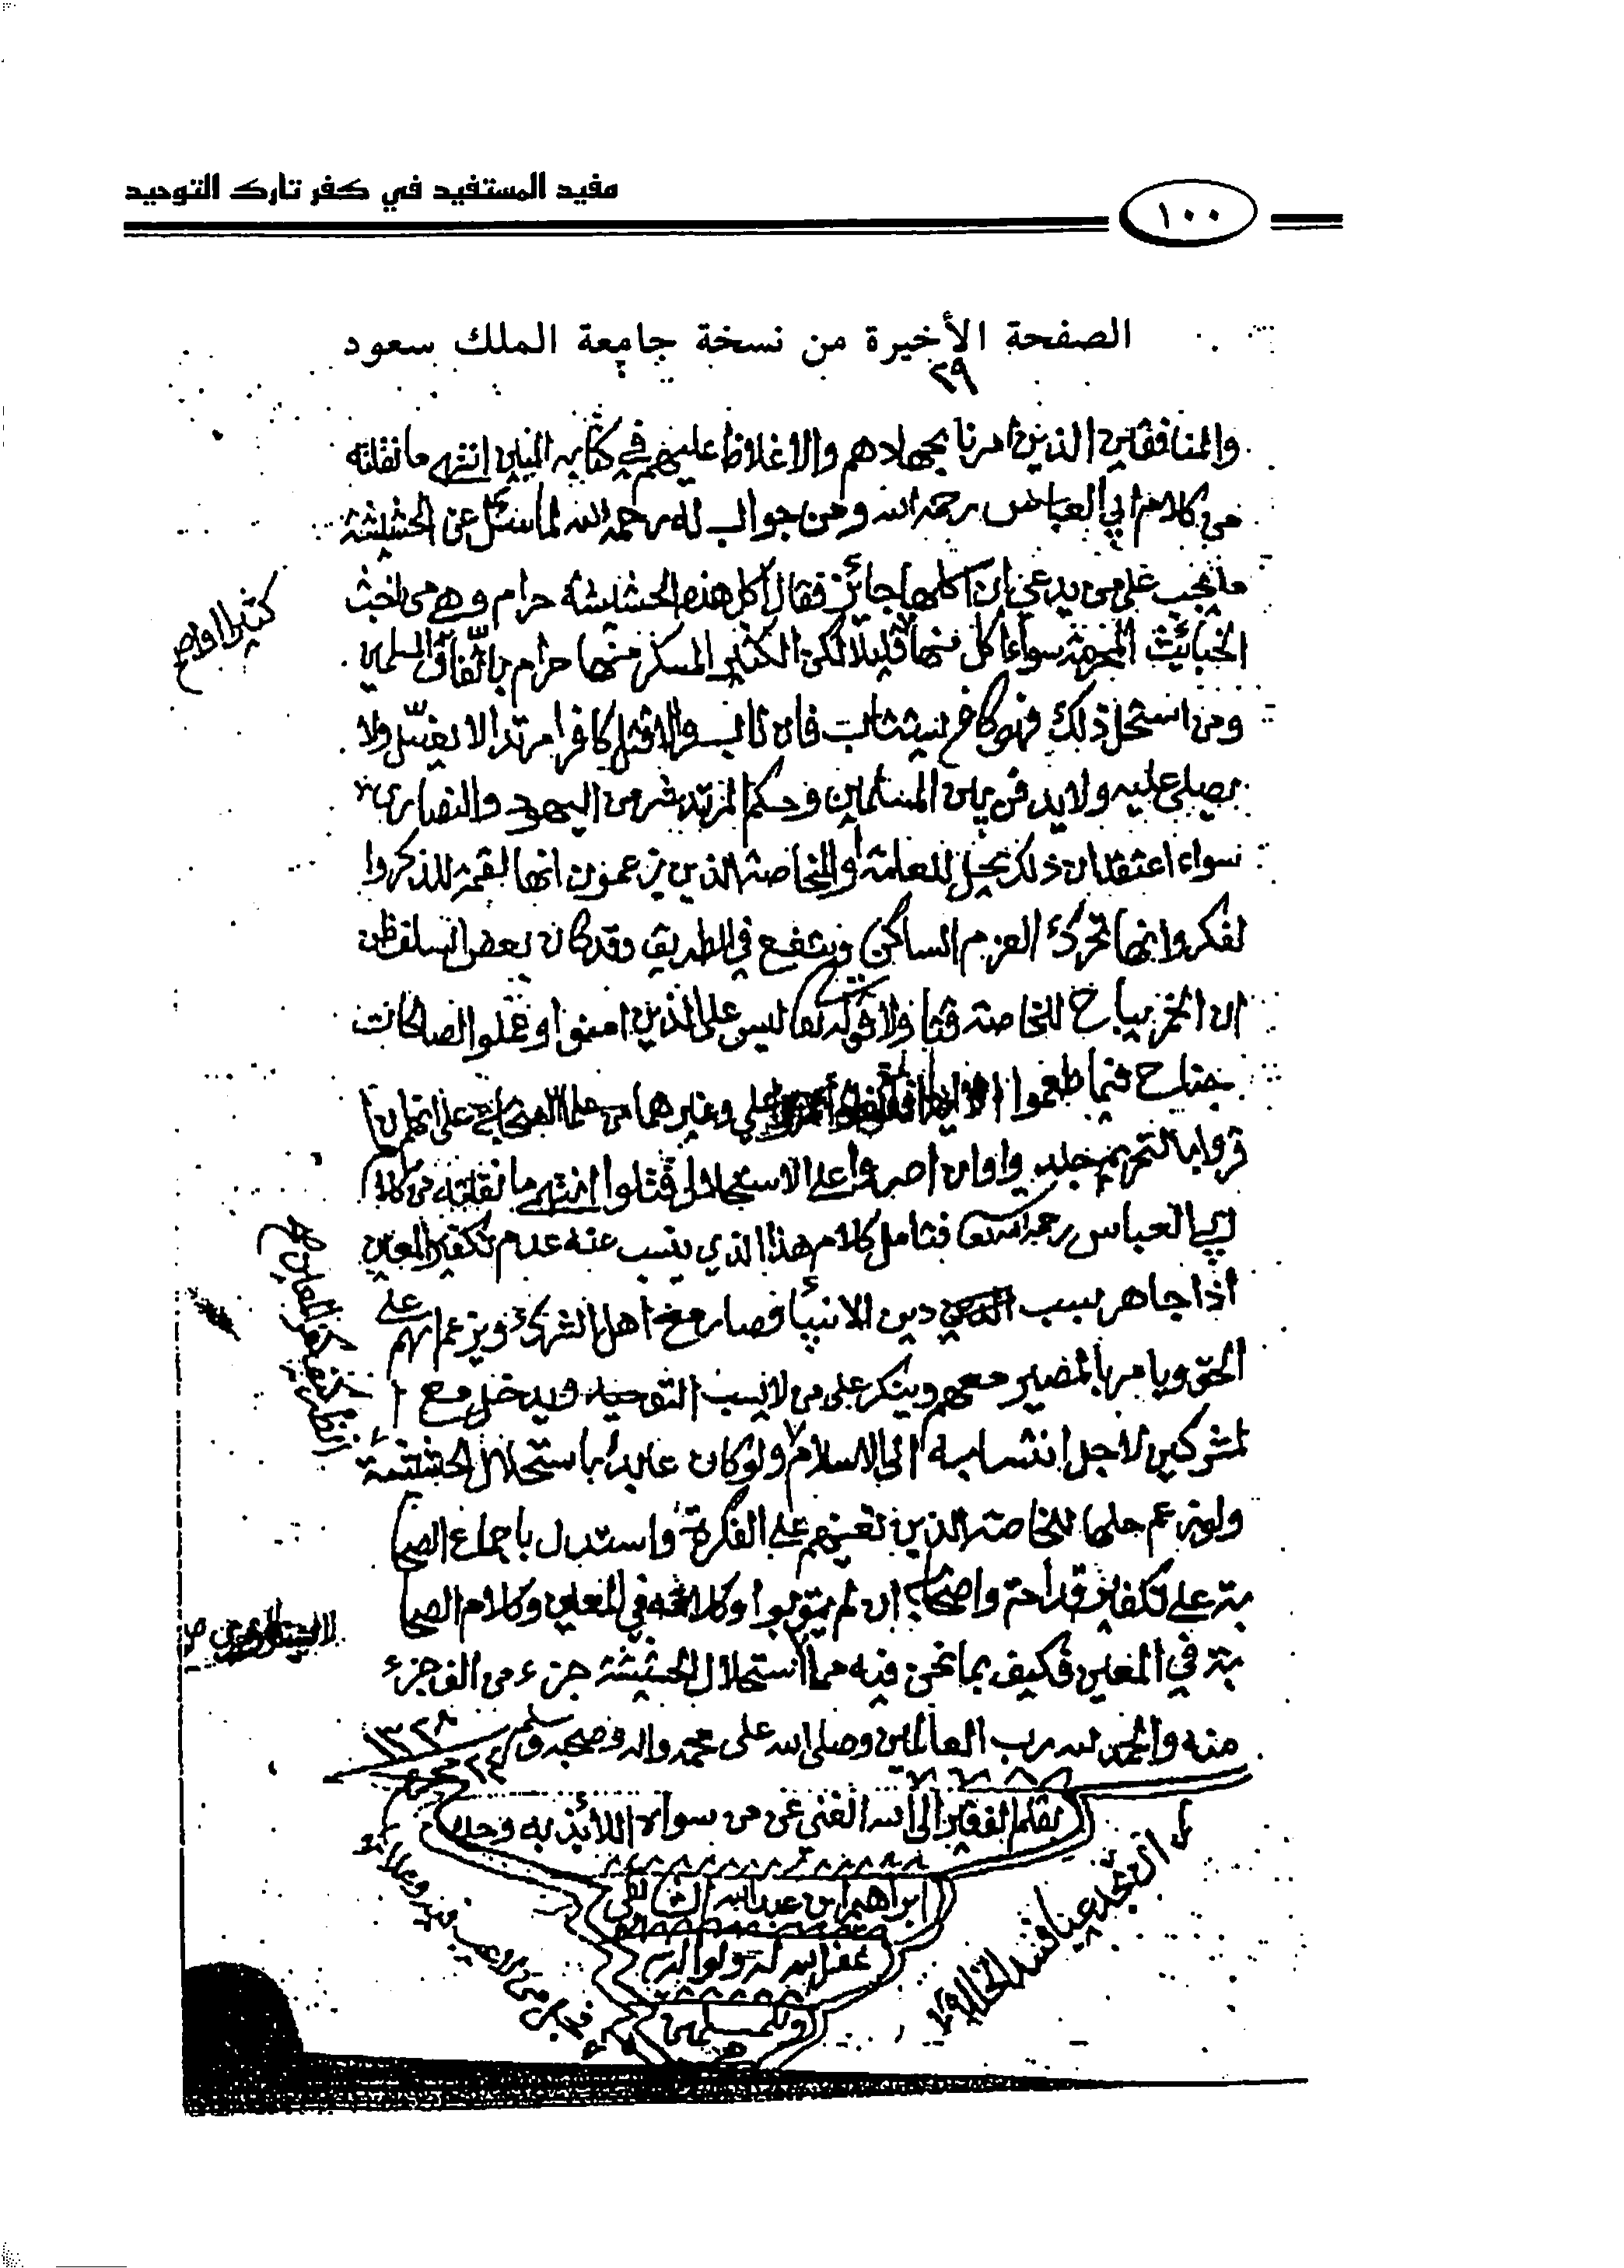 مفيد المستفيد في كفر تارك التوحيد
١٠٠
الصفحة الأخيرة من نسخة جامعة الملك سعود
٢٩
والمنافقين الذين امرنا بجهادهم والاغلاظ عليهم في كتابه المبين انتهى ما نقلته
من كلام ابي العباس رحمه الله ومن جواب له رحمه الله لما سئل عن الحشيشة
ما يجب على من يدعي ان اكلها جائز فقال اكل هذه الحشيشة حرام وهي من اخبث
الخبائث المحرمة سواء اكل منها قليلا لكن الكثير المسكر منها حرام باتفاق المسلمين
كثيرا او
ومن استحل ذلك فهو كافر يستتاب فان تاب والا قتل كافرا مرتدا لا يغسل ولا
يصلى عليه ولا يدفن بين المسلمين وحكم المرتد شر من اليهود والنصارى
سواء اعتقد ان ذلك يحل للعامة او للخاصة الذين يزعمون انها لقمة للذكر وا
لفكر وانها تحرك العزم الساكن وتنفع في الطريق وقد كان بعض السلف ظن
ان الخمر يباح للخاصة متاولا قوله تعا ليس على الذين امنوا وعملوا الصالحات
جناح فيما طعموا وعلي وغيرهما من علما الصحابة على انهم ان ا
قروا بالتحريم جلدوا وان اصروا على الاستحلال قتلوا انتهى ما نقلته من كلام
ابي العباس رحمه الله تعا فتامل كلام هذا الذي ينسب عنه عدم تكفير المعين
اذا جاهر بسبب دين الانبيا وصار مع اهل الشرك ويزعم انهم على
الحق ويامر بالمصير معهم وينكر على من لا يسب التوحيد ويدخل مع ا
لمشركين لاجل انتسابه الى الاسلام ولو كان عابدا باستحلال الحشيشة
ولو زعم حلها للخاصة الذين تعينهم على الفكرة واستدل باجماع الصحا
بة على تكفير قدامة واصحابه ان لم يتوبوا وكلامه في المعين وكلام الصحا
بة في المعين فكيف بما نحن فيه مما استحلال الحشيشة جزء من الف جزء
منه والحمد لله رب العالمين وصلى الله على محمد واله وصحبه وسلم
٢٤ محرم ١٣٣٨
بقلم الفقير الى الله الغني عن من سواه اللائذ به وحده
ابراهيم ابن عبدالله
غفر الله له ولوالديه
وللمسلمين